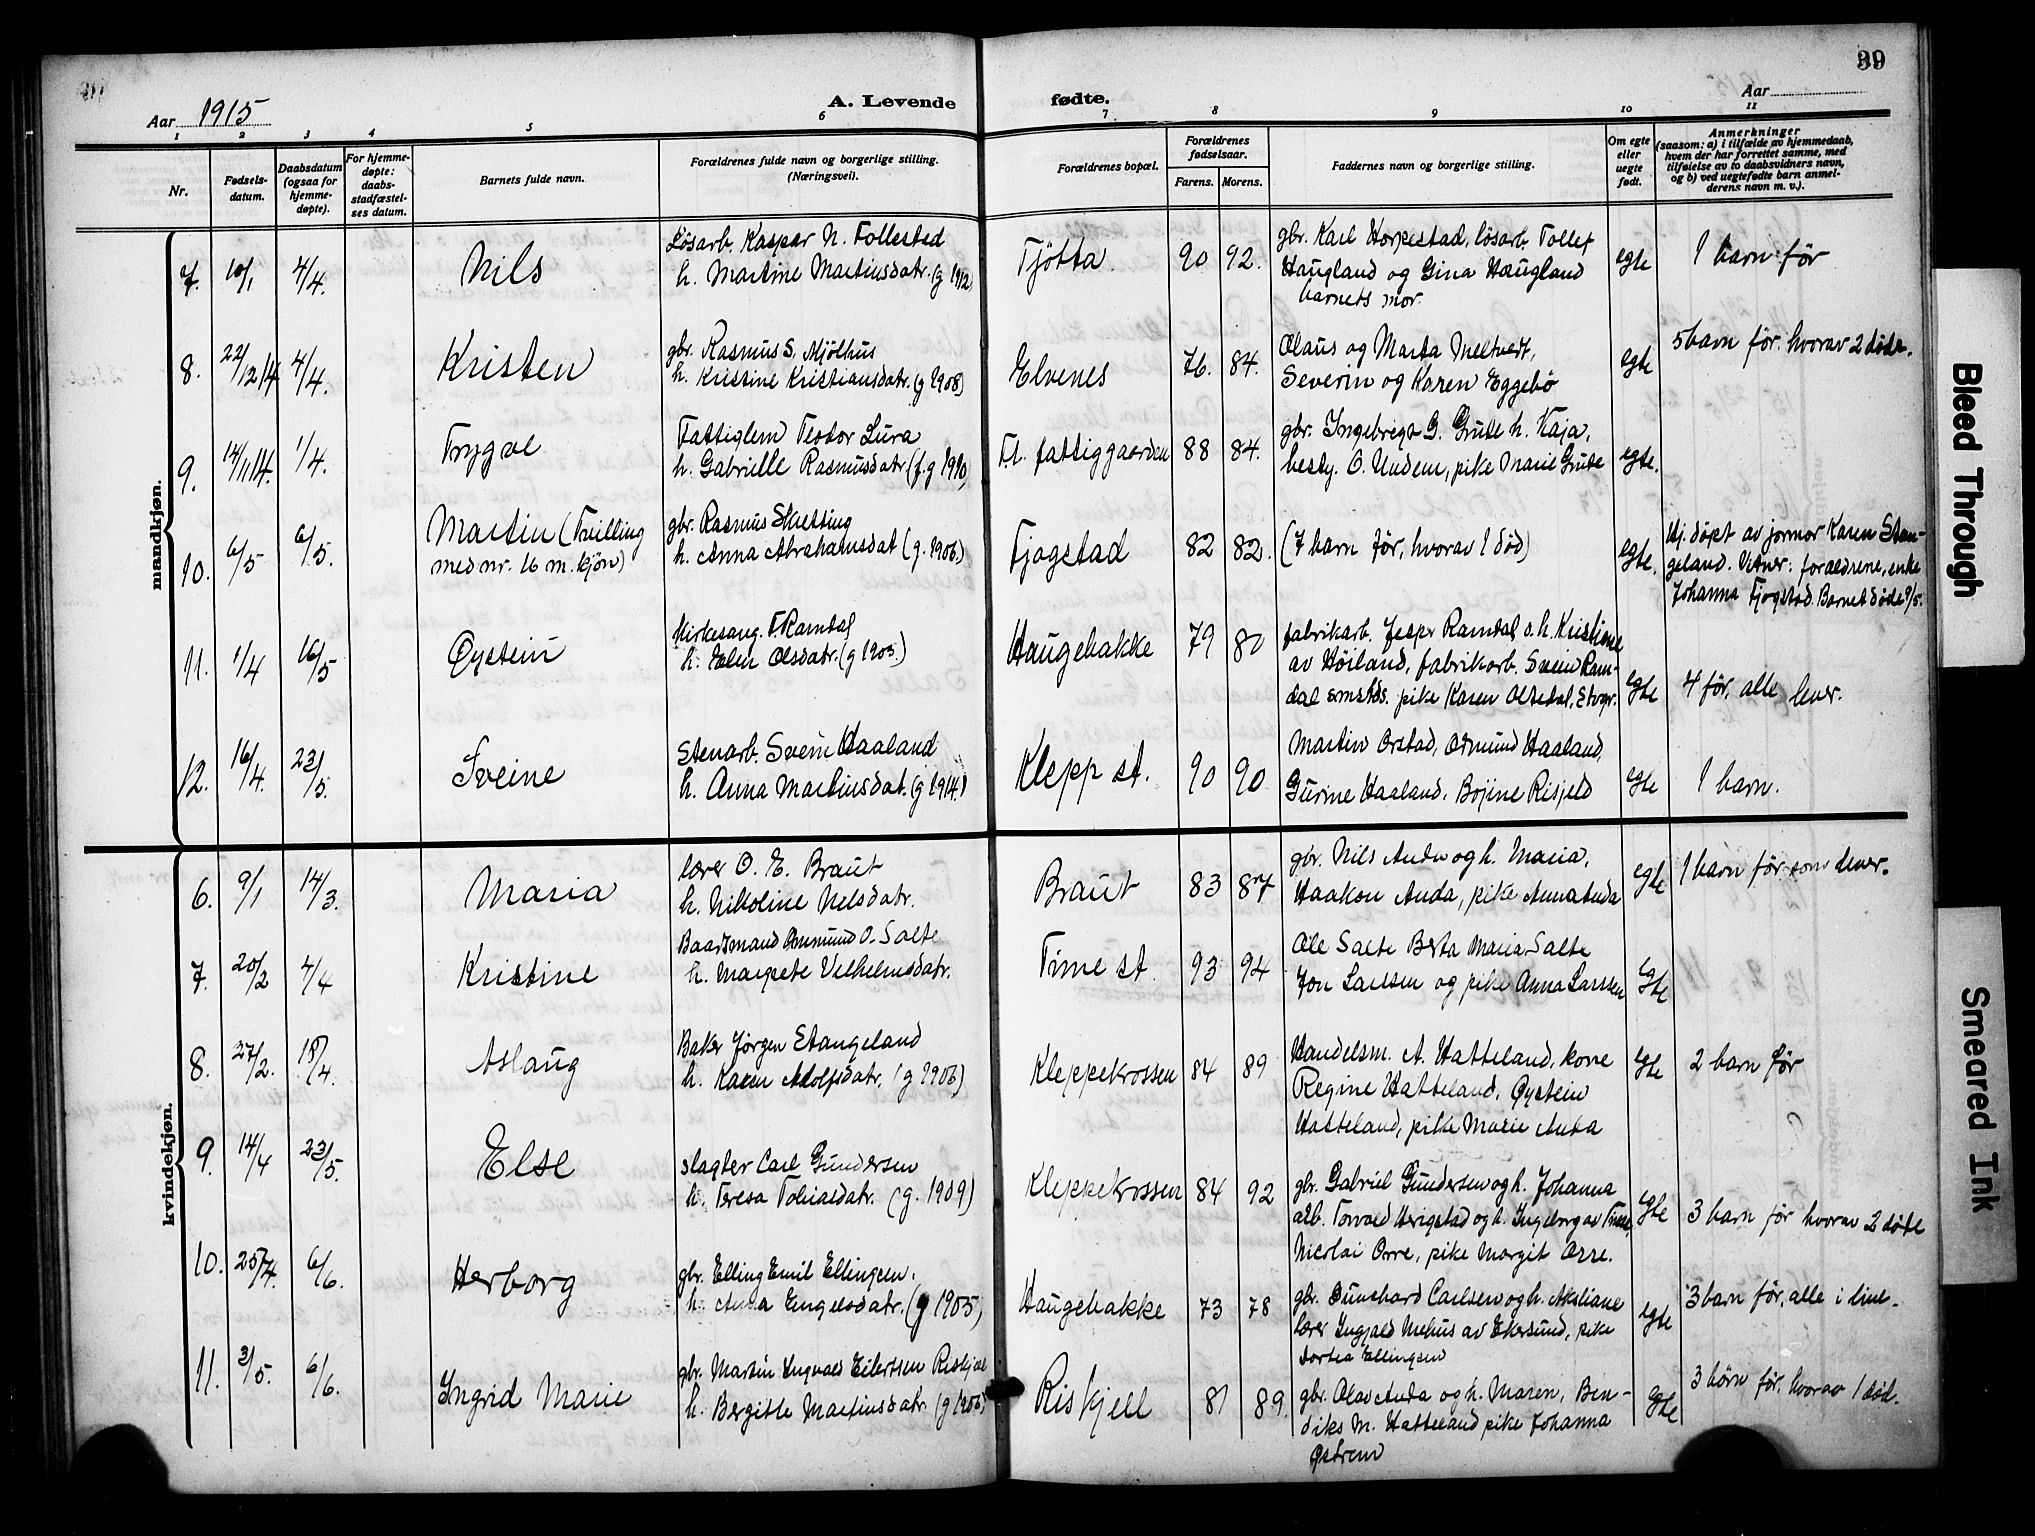 39
Aar 1915
A. Levende fødte.
Aar
1 2 3 4 5 6 7 8 9 10 11
Nr.
Fødsels-
datum.
Daabsdatum
(ogsaa for
hjemme-
døpte).
For hjemme-
døpte:
daabs-
stadfæstel-
ses datum.
Barnets fulde navn.
Forældrenes fulde navn og borgerlige stilling.
(Næringsvei).
Forældrenes bopæl.
Forældrenes
fødselsaar.
Farens. Morens.
Faddernes navn og borgerlige stilling.
Om egte
eller
uegte
født.
Anmerkninger
(saasom: a) i tilfælde av hjemmedaab,
hvem der har forrettet samme, med
tilføielse av to daabsvidners navn,
og b) ved uegtefødte barn anmel-
derens navn m. v.).
mandkjøn.
7. 10/1 4/4. Nils
Løsarb. Kaspar N. Follested
h. Martine Martinsdatr. (g 1912)
Tjøtta. 90 92.
gbr. Karl Horpestad, løsarb. Tollef
Haugland og Gina Haugland
barnets mor.
egte 1 barn før
8. 22/12 14 4/4. Kristen
gbr. Rasmus S. Mjølhus
h. Kristine Kristiansdatr. (g 1908)
Elvenes 76. 84.
Olaus og Marta Meltvedt,
Severin og Karen Eggebø
egte 5 barn før. hvorav 2 døde.
9. 14/11 14. 1/4. Trygve
Fattiglem Teodor Lura
h. Gabrielle Rasmusdatr. (f. g 1910)
T.h. fattiggaarden 88 84.
gbr. Ingebrigt G. Grude h. Kaja,
besty. O. Undem, pike Marie Grude
egte.
10. 6/5 6/5. Martin (Tvilling
med nr. 16 m. kjøn)
gbr. Rasmus Skretting
h. Anna Abrahamsdat (g. 1906.)
Fjogstad 82 82.
(7 barn før, hvorav 1 død)
egte.
Hj. døpt av jormor Karen Stan-
geland. Vitner: forældrene, enke
Johanna Fjogstad. Barnet døde 9/5.
11. 1/4 16/5 Øystein
Kirkesang. T Ramdal
h. Elen Olsdatr. (g 1905.)
Haugebakke 79 80
fabrikarb. Jesper Ramdal o. h. Kristiane
av Høiland, fabrikarb. Svein Ram-
dal smstds. pike Karen Oltedal, Stvgr.
egte 4 før, alle lever.
12. 16/4. 23/5. Sveine
Stenarb. Svein Haaland
h. Anna Martinsdat. (g 1914.)
Klepp st. 90 90
Martin Orstad, Odmund Haaland,
Gurine Haaland, Bojine Risjeld
egte 1 barn.
kvindekjøn.
6. 9/1 14/3. Maria
lærer O. E. Braut
h. Nikoline Nelsdatr.
Braut 83 87
gbr. Nils Anda og h. Maria,
Haakon Anda, pike Anna Anda
egte 1 barn før som lever.
7. 20/2 4/4 Kristine
Baadsmand Ommund O. Salte
h. Margrete Vilhelmsdatr.
Time st. 93 94
Ole Salte Berta Maria Salte
Jon Larsen og pike Anna Larsen
egte
8. 27/2. 18/4. Aslaug
Baker Jørgen Stangeland
h. Karen Adolfsdatr. (g 1906)
Kleppekrossen 84 89
Handelsm. A. Hatteland, kone
Regine Hatteland, Øystein
Hatteland, pike Marie Anda
egte 2 barn før
9. 14/4 23/5. Else
slagter Carl Gundersen
h. Teresa Tobiasdatr. (g. 1909)
Kleppekrossen 84 92
gbr. Gabriel Gundersen og h. Johanna
arb. Torvald Herigstad og h. Ingeborg av Time,
Nicolai Orre, pike Margit Orre.
egte 3 barn før hvorav 2 døde
10. 25/4. 6/6. Herborg
gbr. Elling Emil Ellingsen.
h. Anna Engelsdatr. (g 1905)
Haugebakke 73 78
gbr. Gunehard Carlsen og h. Akseliane
lærer Ingjald Mehus av Ekersund, pike
Dortea Ellingsen
egte 3 barn før, alle i live.
11. 3/5. 6/6. Ingrid Marie
gbr. Martin Ingvald Eilertsen Riskjæl
h. Bergitte Martinsdatr. (g 1906)
Riskjell 81 89.
gbr. Olav Anda og h. Maren, Ben-
diks M. Hatteland pike Johanna
Østrem
egte 3 børn før, hvorav 1 død.
Bleed Through
Smeared Ink